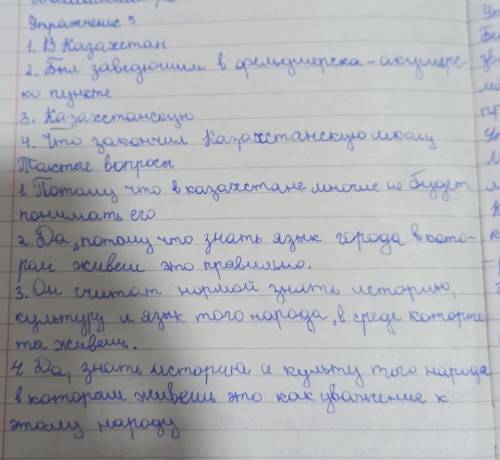 Упражнение 3
1. В Казахстан
2. Был заведющим в фельдшерска-акушерс-
ко пункте
3. Казахстанскую
4. Что закончил Казахстанскую школу
Толстые вопросы
1. Потому что в казахстане многие не будет
понимать его
2. Да, потому что знать язык города в кото-
ром живеш это правильно.
3. Он считат нормой знать историю,
культуру и язык того народа, в среде которого
ты живешь.
4. Да, знать историю и культу того народа
в котором живёшь это как уважение к
этому народу